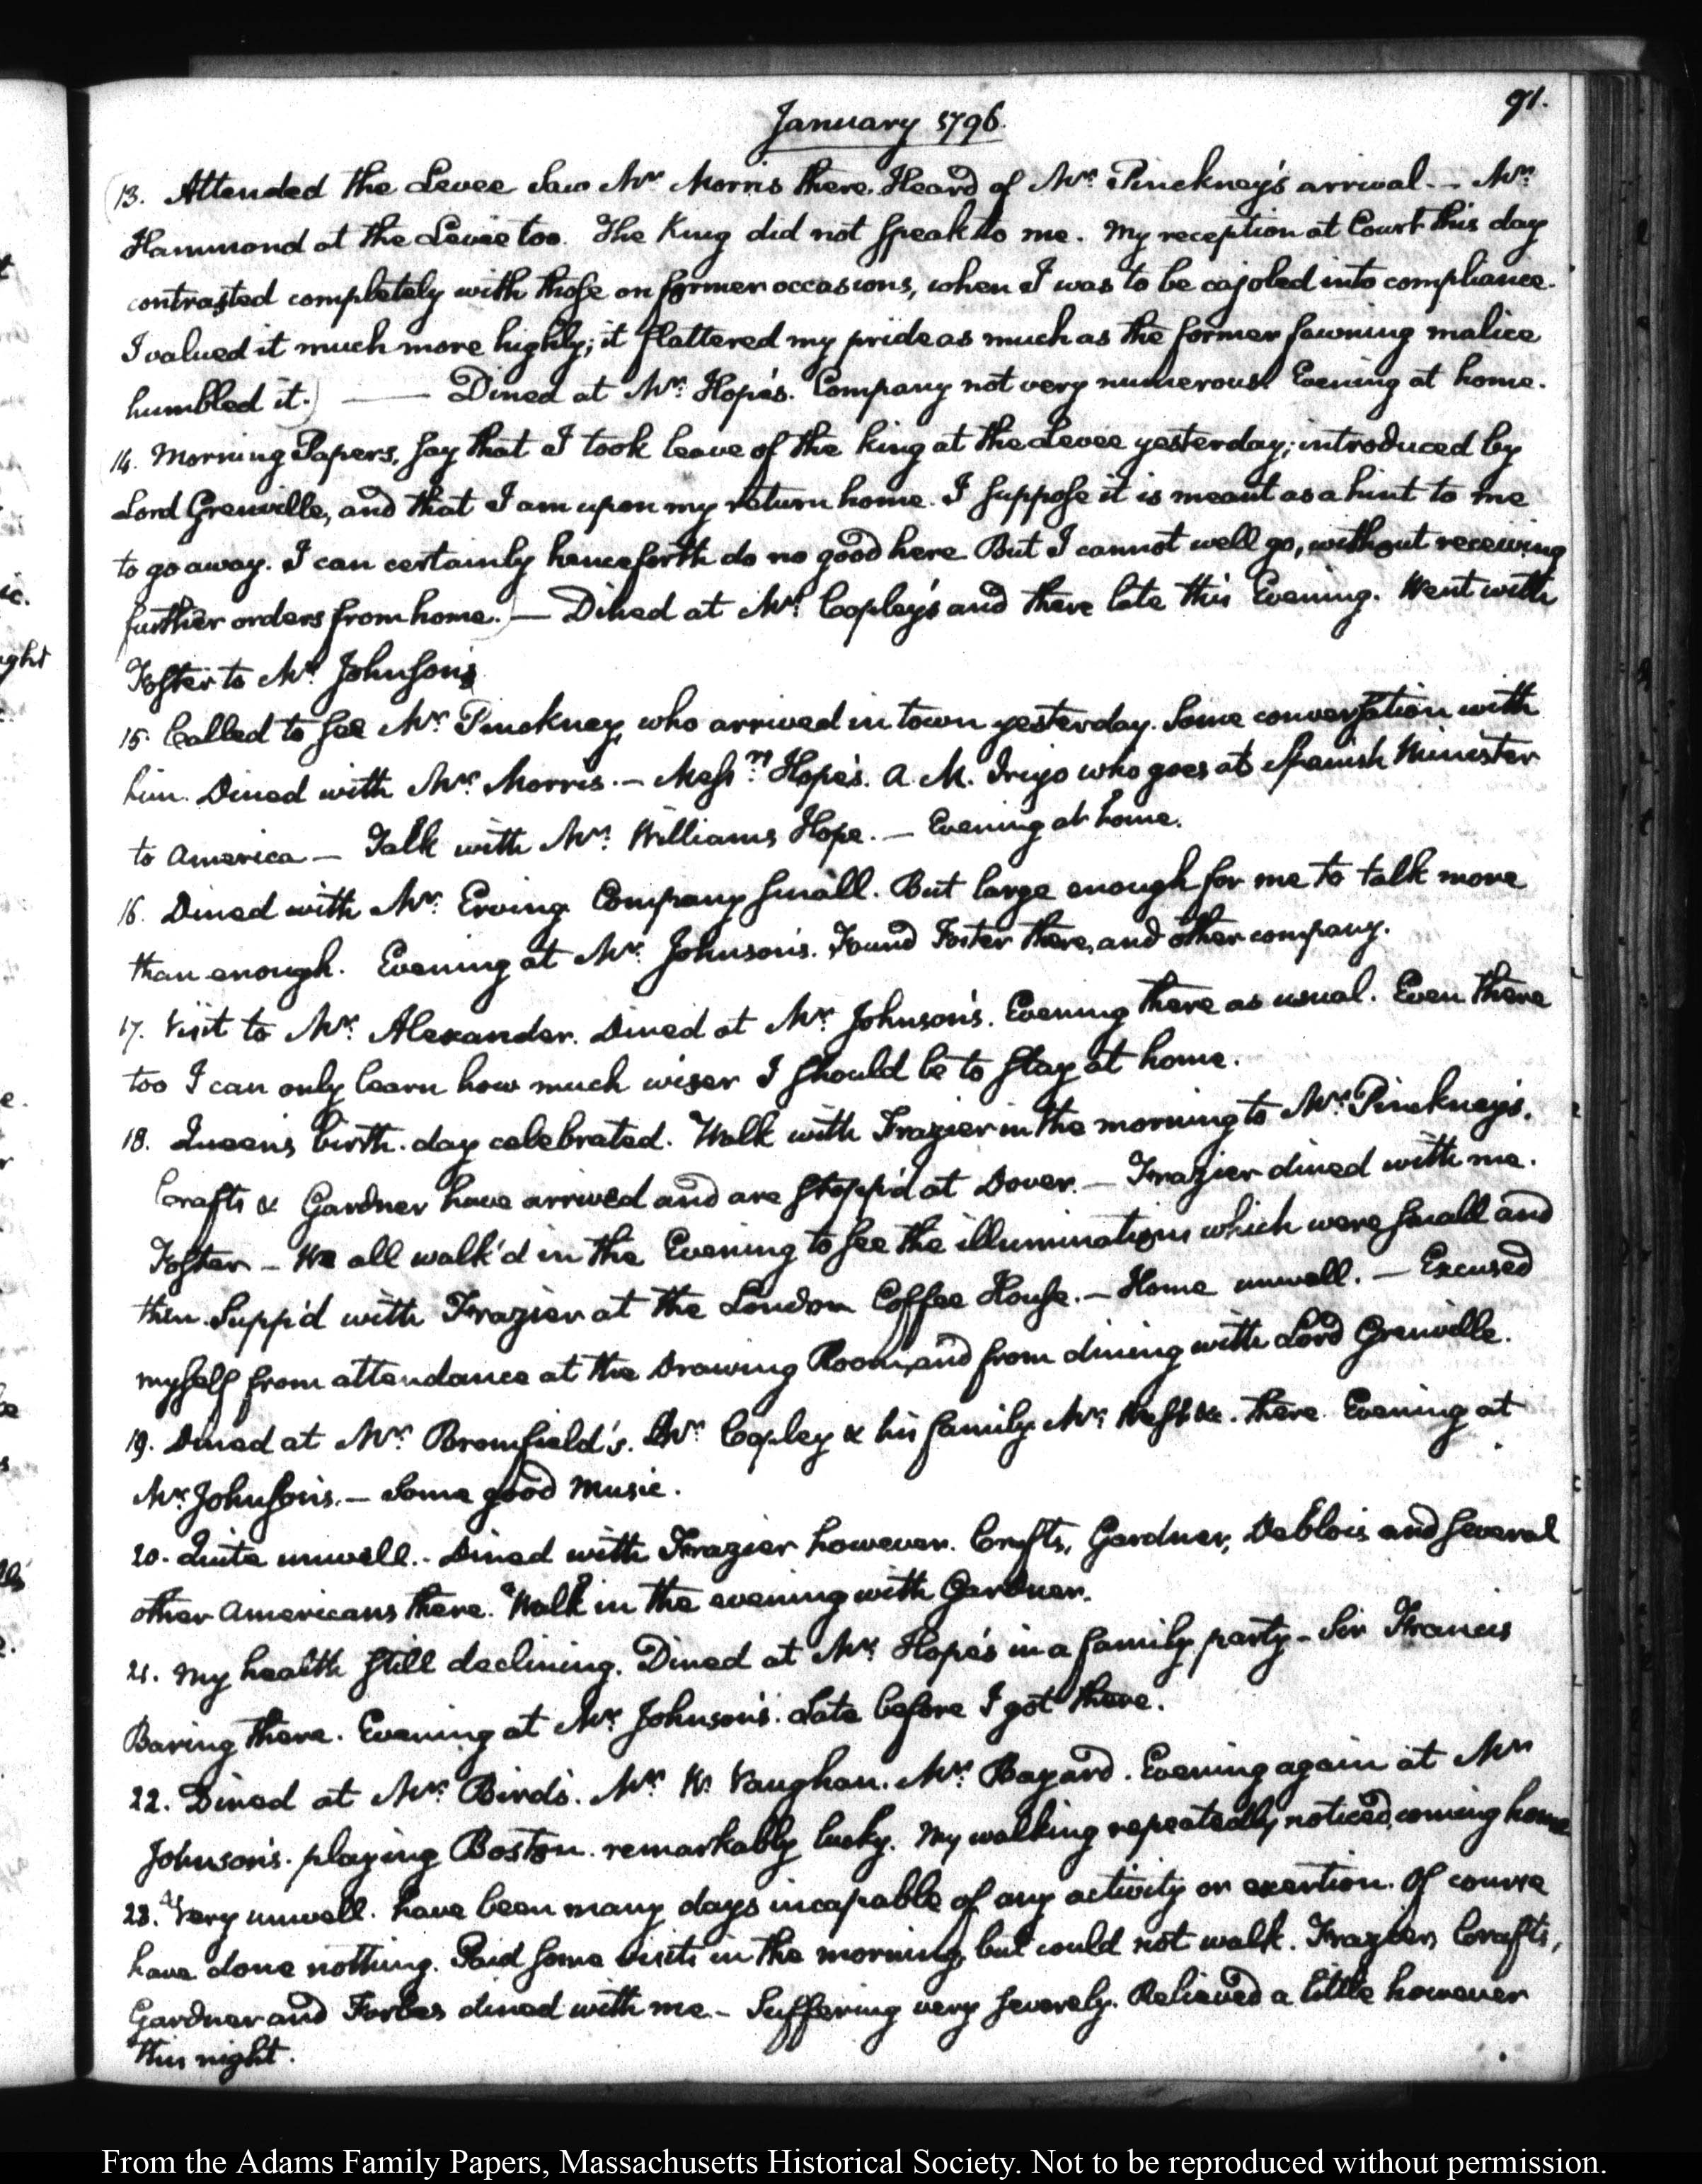 January 1796.
91.
13. Attended the Levee Saw Mr. Morris there. Heard of Mr. Pinckney's arrival. - Mr.
Hammond at the Levee too. The King did not speak to me. My reception at Court this day
contrasted completely with those on former occasions, when I was to be cajoled into compliance.
I valued it much more highly; it flattered my pride as much as the former fawning malice
humbled it.) — Dined at Mr. Hope's. Company not very numerous. Evening at home.
14. Morning Papers, say that I took leave of the King at the Levee yesterday; introduced by
Lord Grenville, and that I am upon my return home. I suppose it is meant as a hint to me
to go away. I can certainly henceforth do no good here. But I cannot well go, without receiving
further orders from home.) — Dined at Mr. Copley's and there late this Evening. Went with
Foster to Mr. Johnson's
15. Called to see Mr. Pinckney, who arrived in town yesterday. Some conversation with
him. Dined with Mr. Morris. - Messrs. Hope's. A M. Irujo who goes as Spanish Minister
to America - Talk with Mr. Williams Hope. - Evening at home.
16. Dined with Mr. Erving. Company small. But large enough for me to talk more
than enough. Evening at Mr. Johnson's. Found Foster there, and other company.
17. Visit to Mr. Alexander. Dined at Mr. Johnson's. Evening there as usual. Even there
too I can only learn how much wiser I should be to stay at home.
18. Queen's birth-day celebrated. Walk with Frazier in the morning to Mr. Pinckney's.
Crafts & Gardner have arrived and are stopp'd at Dover. - Frazier dined with me.
Foster - We all walk'd in the Evening to see the illuminations which were small and
thin. Supp'd with Frazier at the London Coffee House. - Home unwell. - Excused
myself from attendance at the Drawing Room, and from dining with Lord Grenville.
19. Dined at Mr. Bromfield's. Mr. Copley & his family. Mr. West &c. there. Evening at
Mr. Johnson's. - Some good Music.
20. Quite unwell. Dined with Frazier however. Crafts, Gardner, Deblois and several
other Americans there. Walk in the evening with Gardner.
21. My health still declining. Dined at Mr. Hope's in a family party - Sir Francis
Baring there. Evening at Mr. Johnson's. Late before I got there.
22. Dined at Mr. Bird's. Mr. W. Vaughan. Mr. Bayard. Evening again at Mr.
Johnson's. playing Boston. remarkably lucky. My walking repeatedly noticed, coming home
23. Very unwell. have been many days incapable of any activity or exertion. Of course
have done nothing. Paid some visits in the morning, but could not walk. Frazier, Crafts,
Gardner and Forbes dined with me - Suffering very severely. Relieved a little however
this night.
From the Adams Family Papers, Massachusetts Historical Society. Not to be reproduced without permission.